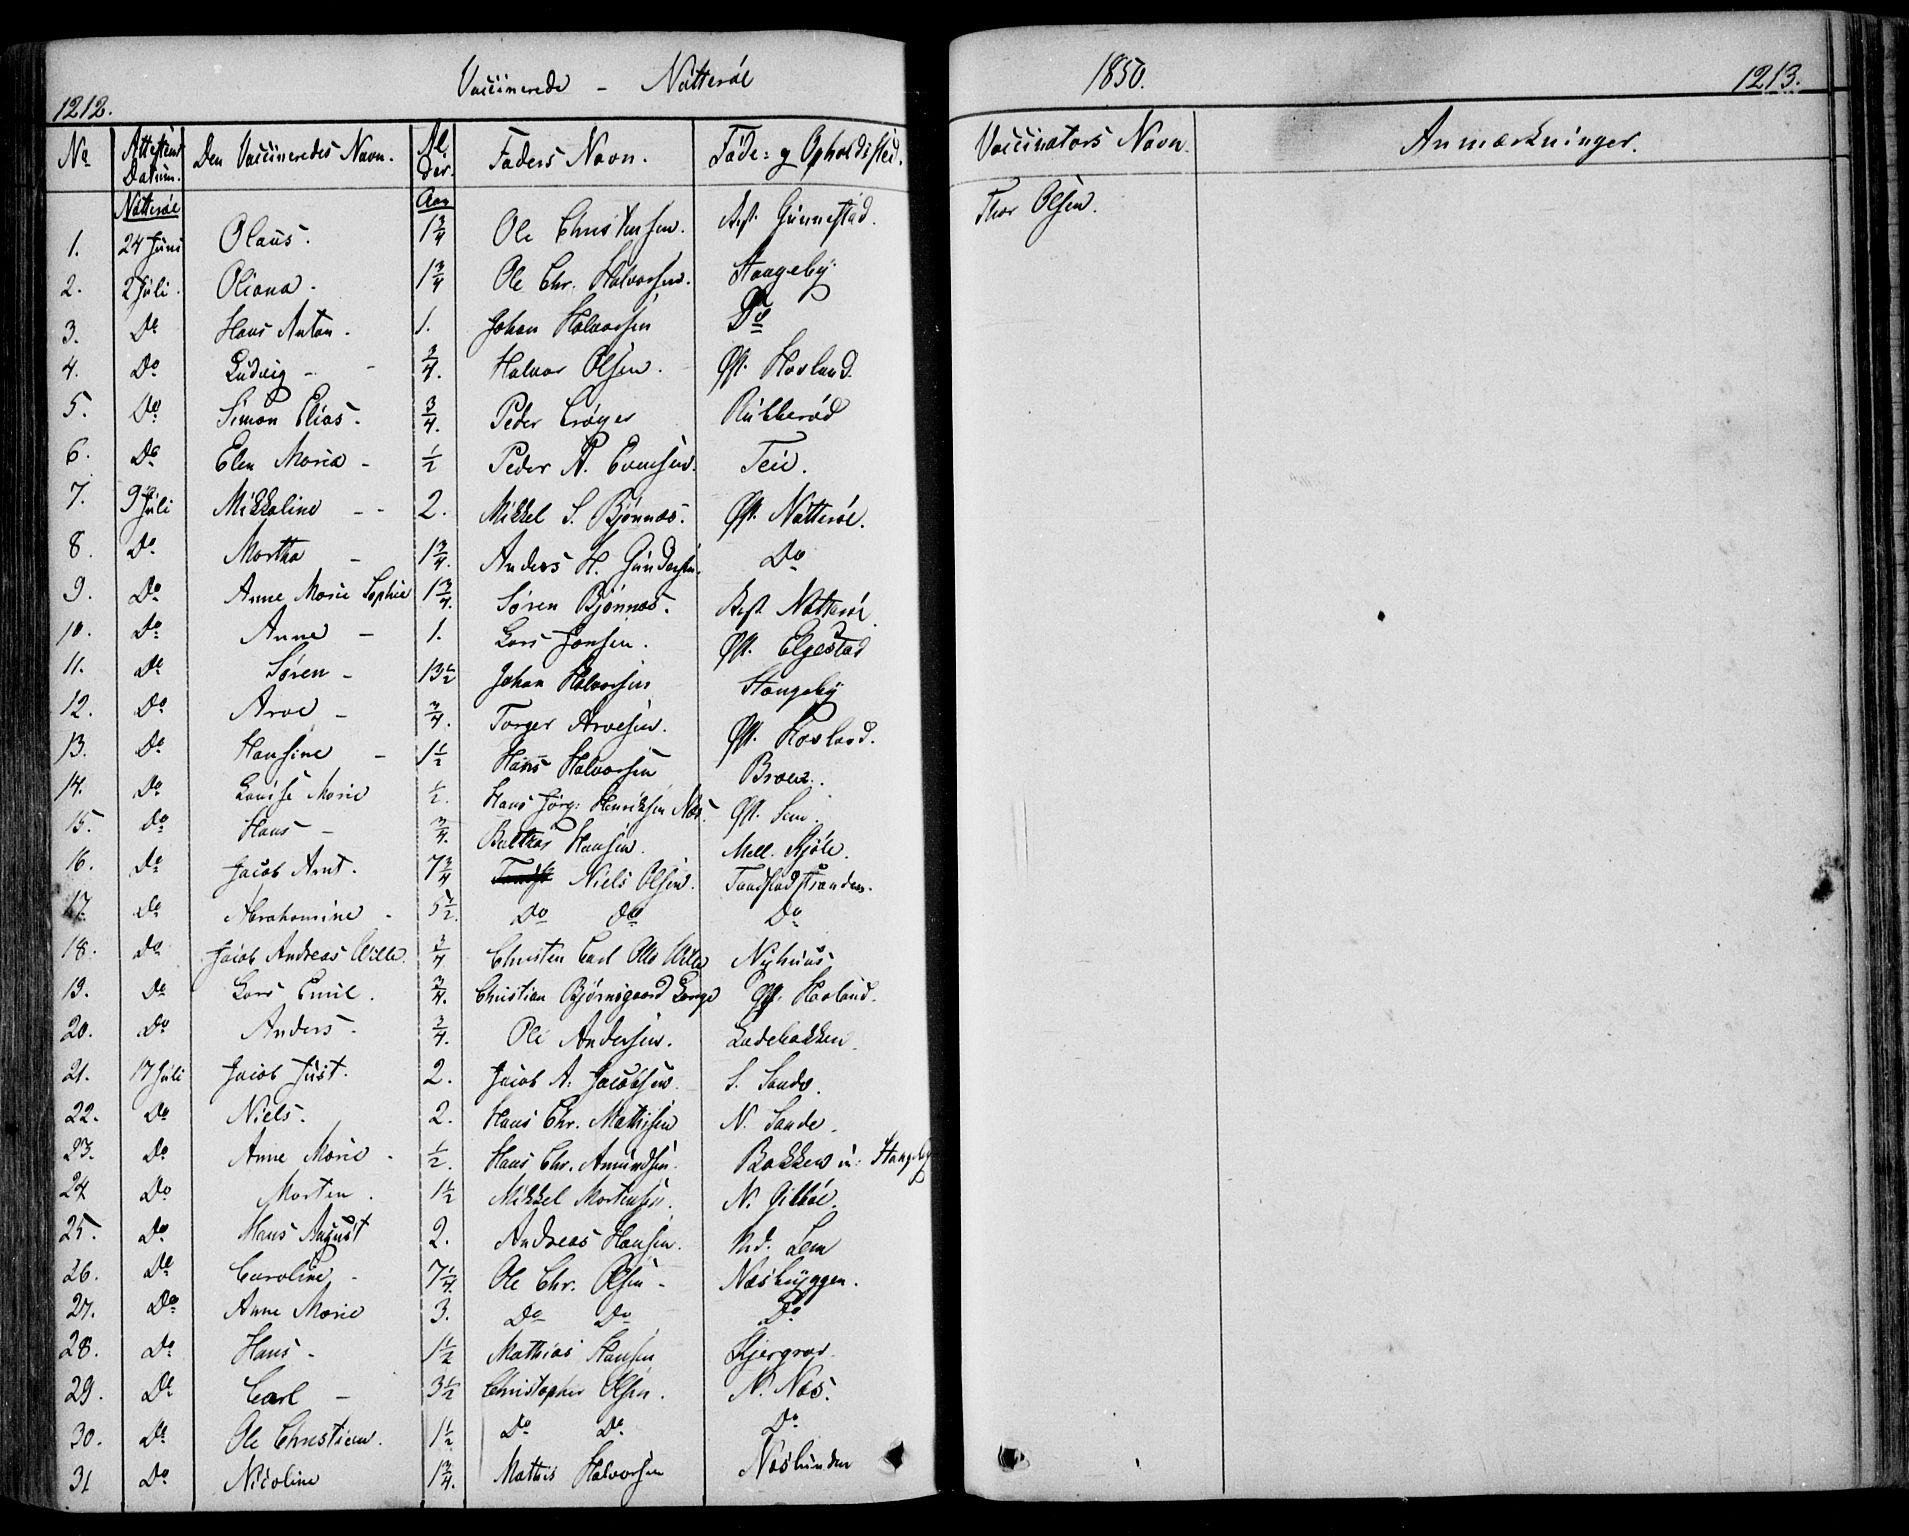 1212. Vaccinerede - Nøtterøe 1850. 1213.
No Attestens Datum. Den Vaccineredes Navn. Alder. Faders Navn. Føde- og Opholdssted. Vaccinators Navn Anmærkninger.
Nøtterøe Aar
1. 24 Juni Olaus. 1 3/4 Ole Christensen. Vest. Gunnestad. Thor Olsen.
2. 2 Juli. Oliana. 1 3/4 Ole Chr. Halvorsen. Stangeby
3. Do Hans Anton. 1. Johan Halvorsen Do
4. Do Ludvig - - 3/4. Halvor Olsen. Øst. Hovland.
5. Do Simon Elias. 3/4. Peder Crøger Rubberød
6. Do Elen Maria - 1/2 Peder A. Evensen. Teie.
7. 9 Juli Mikkaline - - 2. Mikkel S. Bjønnæs. Øst. Nøtterøe.
8. Do Martha - 1 3/4. Anders H. Gundersen. Do
9. Do Anne Marie Sophie 1 3/4. Søren Bjønnæs. Vest. Nøtterøe
10. Do Anne - 1. Lars Jansen. Øst. Elgestad
11. Do Søren - 13 1/2 Johan Halvorsen Stangeby
12. Do Arve - 3/4. Torger Arvesen. Øst. Hovland.
13. Do Hansine - 1 1/2 Hans Halvorsen Broen.
14. Do Lovise Marie 1/2. Hans Jørg: Henriksen Næs. Øst. Sem.
15. Do Hans - 3/4. Balthas Hansen. Mell. Kjøle.
16. Do Jacob Arnt. 7 3/4 Niels Olsen. Tandstadstranden.
17. Do Abrahamine - 5 1/2. Do Do Do
18. Do Jacob Andreas Wille. 3/4 Christen Carl Otto Wille Nyhuus
19. Do Lars Emil. 3/4. Christian Bjørnsgaard Lange Øst. Hovland.
20. Do Anders. 3/4. Ole Andersen. Ladebakken.
21. 17 Juli Jacob Just. 2. Jacob A. Jacobsen. S. Sande.
22. Do Niels. 2. Hans Chr. Mathisen N. Sande.
23. Do Anne Marie - 1/2. Hans Chr. Amundsen. Bakken u: Stangeby
24 Do Morten. 1 1/2 Mikkel Mortensen. N. Gibbøe.
25. Do Hans August 2. Andreas Hansen. Nd. Sem
26. Do Caroline - 7 1/4. Ole Chr. Olsen - Næsbryggen.
27. Do Anne Marie 3. Do Do Do
28. Do Hans - 1 1/2 Mathias Hansen Skjergrav.
29. Do Carl - 3 1/2 Christopher Olsen. N. Næs.
30. Do Ole Christian. 1 1/2. Do Do Do
31 Do Nicoline 1 3/4. Mathis Halvorsen Næslunden